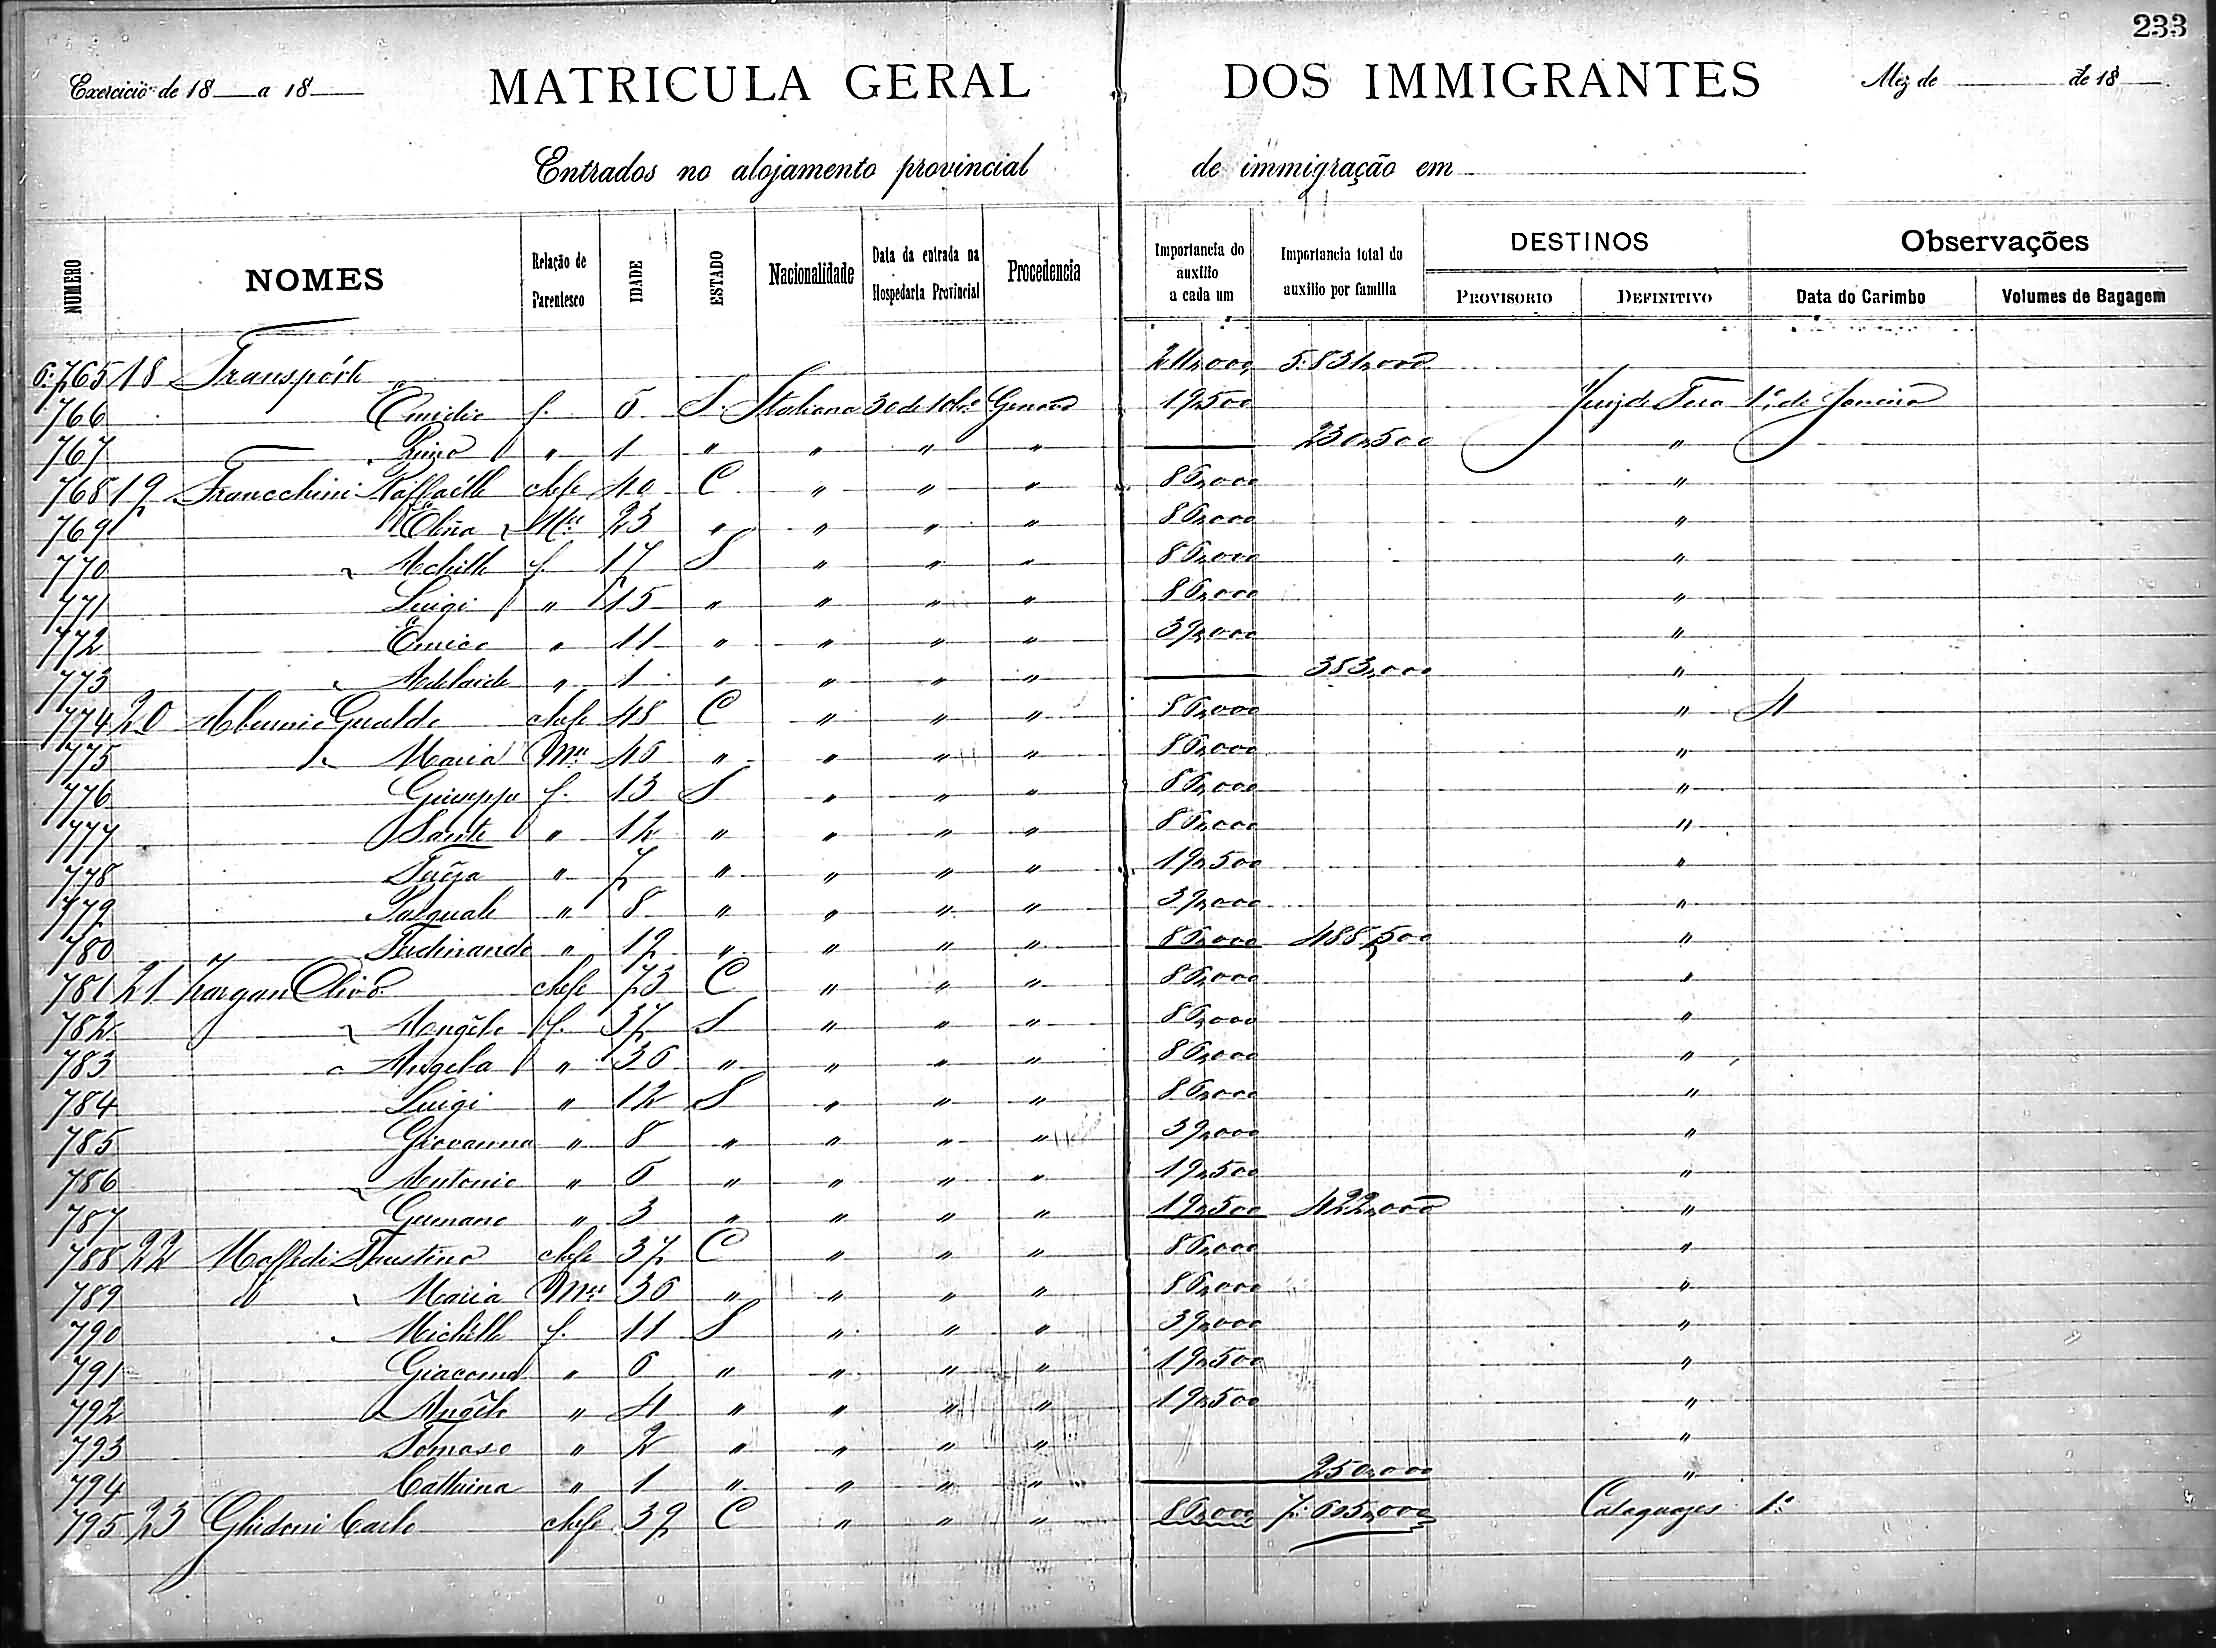 233
Exercicio de 18 a 18
MATRICULA GERAL DOS IMMIGRANTES
Mez de de 18
Entrados no alojamento provincial de immigração em
NUMERO NOMES Relação de Parentesco IDADE ESTADO Nacionalidade Data da entrada na Hospedaria Provincial Procedencia Importancia do auxilio a cada um Importancia total do auxilio por familia DESTINOS PROVISORIO DEFINITIVO Observações Data do Carimbo Volumes de Bagagem
6:765 18 Transporte 211,000 5:831,000
766 Emidio f. 6 S. Italiana 30 de Genova 19,500 Juiz de Fora 1º de Janeiro
767 " 1 " " " " 230,500 "
768 19 Franchini Raffaelle chefe 40 C " " " 86,000 "
769 " Mer 23 " " " " 86,000 "
770 " Achille f. 17 S " " " 86,000 "
771 Luigi " 15 " " " " 86,000 "
772 Enrico " 11 " " " " 39,000 "
773 " Adelaide " 1 " " " " 383,000 "
774 20 Gualdo chefe 48 C " " " 86,000 " 4
775 " Maria Mer 46 " " " " 86,000 "
776 Giuseppe f. 13 S " " " 86,000 "
777 Sante " 12 " " " " 86,000 "
778 " 7 " " " " 19,500 "
779 Pasquale " 8 " " " " 39,000 "
780 " Ferdinando " 19 " " " " 86,000 488,500 "
781 21 chefe 73 C " " " 86,000 "
782 " Angelo f. 37 S " " " 86,000 "
783 " Angela " 36 " " " " 86,000 "
784 Luigi " 12 S " " " 86,000 "
785 Giovanna " 8 " " " " 39,000 "
786 " Antonio " 6 " " " " 19,500 "
787 Germano " 3 " " " " 19,500 422,000 "
788 22 Maffedi Faustino chefe 37 C " " " 86,000 "
789 " Maria Mer 36 " " " " 86,000 "
790 " Michelle f. 11 S " " " 39,000 "
791 Giacomo " 6 " " " " 19,500 "
792 " Angelo " 4 " " " " 19,500 "
793 Tomaso " 2 " " " " "
794 Catterina " 1 " " " " 250,000 "
795 23 Ghidoni Carlo chefe 39 C " " " 86,000 7:695,000 Cataguazes 1º